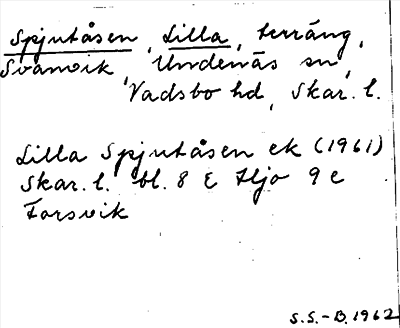 Spjutåsen, Lilla, terräng,
Svanvik, Undenäs sn,
Vadsbo hd, Skar. l.
Lilla Spjutåsen ek (1961)
Skar. l. bl. 8 E Hjo 9 e
Forsvik
S.S.-B. 1962